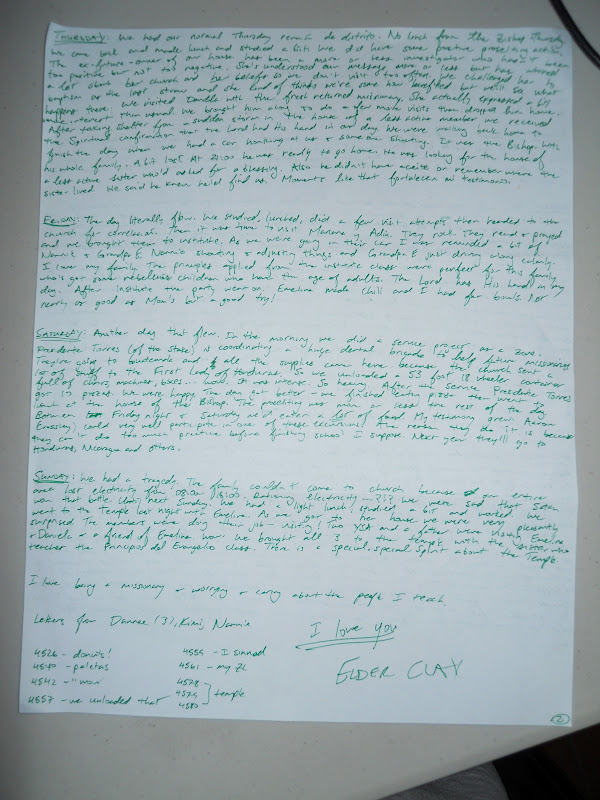 THURSDAY: We had our normal Thursday reunión de distrito. No lunch from the Bishop Thursday
we came back and made lunch and studied a bit. We did have some proselyting
The ex-future-owner of our house has been a more or less investigator who hasn't been
too positive but not too negative. She's understood our message more or less but only shared
a lot about her church and her beliefs so we don't visit too often. We challenged her to
baptism as the last straw and she kind of thinks we're some how benefited but we'll see what
happens there. We invited Danelle with the fresh returned missionary. She actually expressed a bit
more interest than usual. We brought him to do a few more visits then dropped him home.
After taking shelter from a sudden storm in the house of a less active member we received
the Spiritual confirmation that the Lord had His hand in our day. We were walking back home to
finish the day when we had a car honking at us & someone shouting. It was the Bishop with
his whole family. A bit lost. At 21:00 he was ready to go home. He was looking for the house of
a less active sister who'd asked for a blessing. Also he didn't have aceite or remember where the
sister lived. He said he knew he'd find us. Moments like that fortalecen mi testimonio.
FRIDAY: The day literally flew. We studied, lunched, did a few visit attempts then headed to the
church for correlation. Then it was time to visit Mariana y Adin. They rock. They read & prayed
and we brought them to institute. As we were going in their car I was reminded a bit of
Nannie & Grandpa E. Nannie shouting & adjusting things and Grandpa E just driving along calmly.
I love my family. The principles applied from the institute class were perfect for this family
who's got some rebellious children who have the age of adults. The Lord has His hand in my
day. After institute the party went on. Emeline made chili and I had four bowls. Not
nearly as good as Mom's but a good try!
SATURDAY: Another day that flew. In the morning we did a service project as a zone.
Presidente Torres (of the stake) is coordinating a huge dental brigade to help future missionaries.
They're going to and all the supplies came here because the church sent
of stuff to the First Lady of Honduras. So we unloaded a 53 foot 18 wheeler container
full of chairs, machines, boxes... wow. It was intense. So heavy. After the service Presidente Torres
got 10 pizzas. We were happy. The day got better - we finished eating pizza then we went to
lunch in the house of the Bishop. The was more or less the rest of the day.
Between Friday night & Saturday we'd eaten a lot of food. My testimony grew. Aaron
could very well participate in one of these excursions! The reason they do it is because
they can't do too much practice before finishing school I suppose. Next year they'll go to
Honduras, Nicaragua and others.
SUNDAY: We had a tragedy. The family couldn't come to church because our entire
area lost electricity from 08:00a 18:00. Rationing electricity - ?!? We were sad that Satan
won that battle. Until next Sunday. We had a light lunch, studied a bit and worked. We
went to the Temple last night with Emeline. As we got to her house we were very pleasantly
surprised. The members were doing their job - visiting! Two YSA and a father were visiting Emeline
& Daniela - a friend of Emeline wow. We brought all 3 to the temple with the sister who
teaches the Principios del Evangelio class. There is a special, special Spirit about the Temple
I love being a missionary & worrying & caring about the people I teach.
Letters from Dannee (3), Kimi, Nannie
I love you
ELDER CLAY
4526 - donuts!
4540 - paletas
4542 - "wow"
4557 - we unloaded that
4559 - I sinned
4561 - my ZL
4578
4579
4580
temple
2